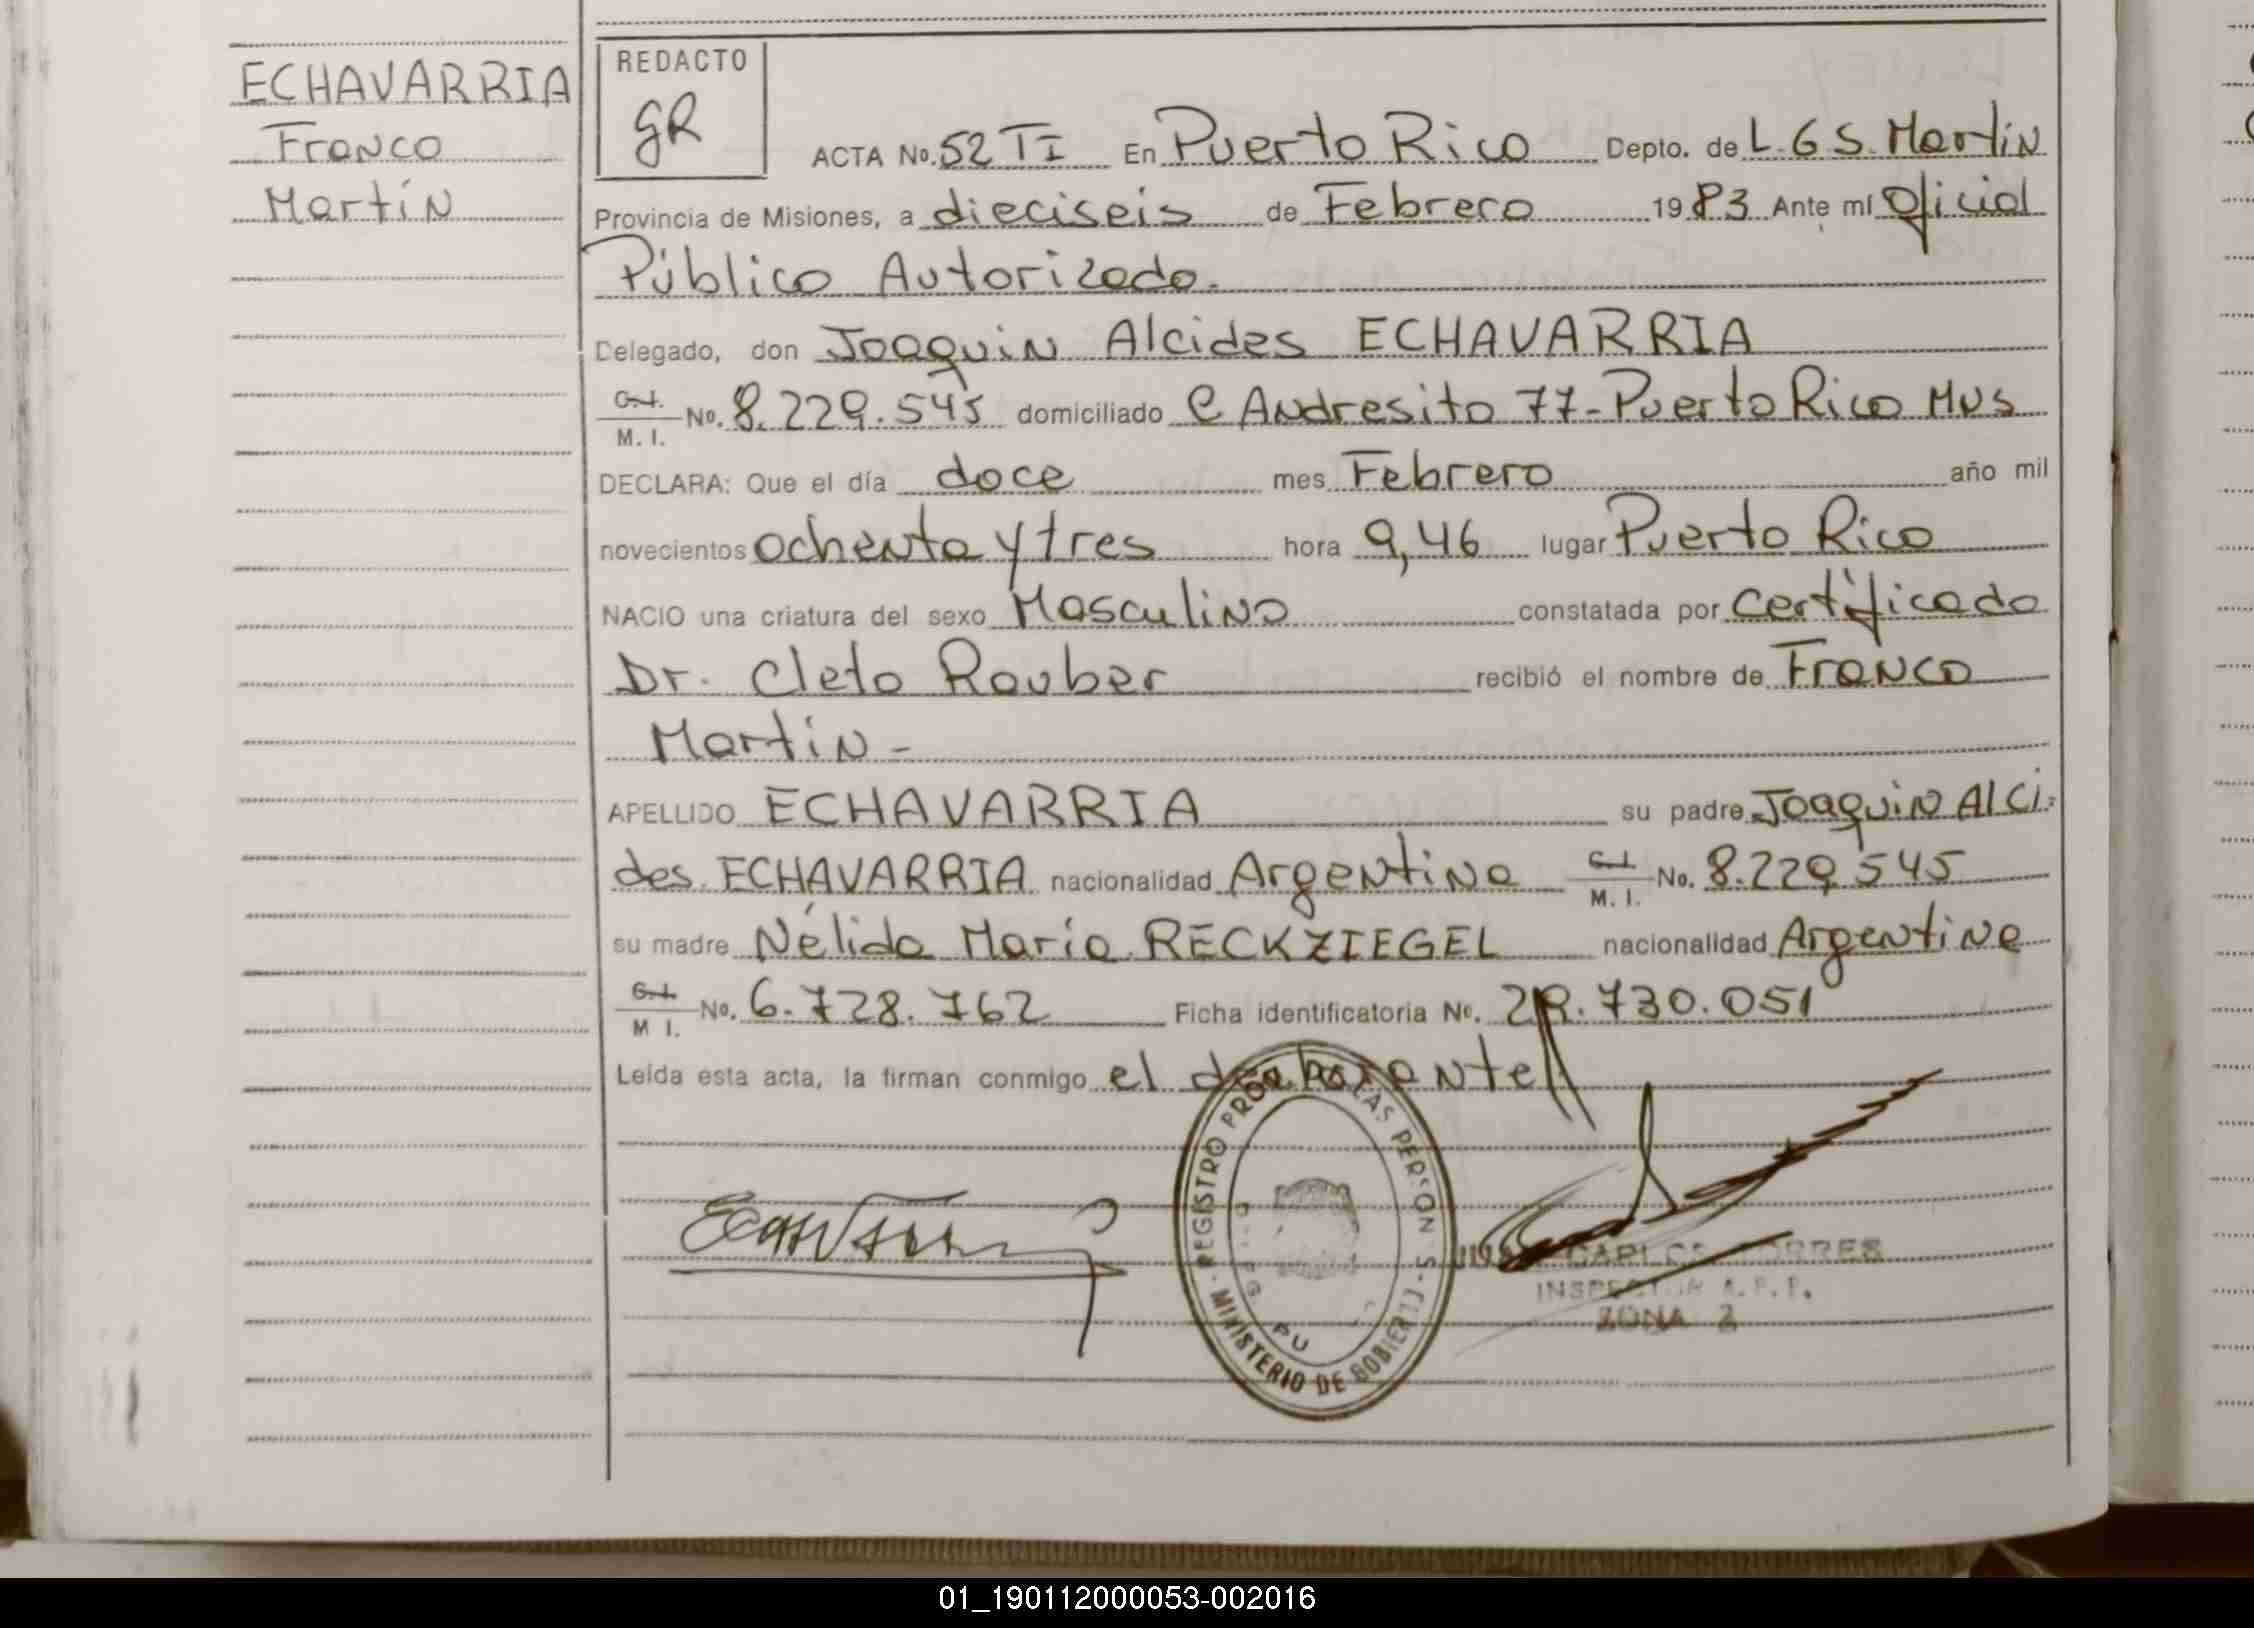 ECHAVARRIA
Franco
Martín
REDACTO
GR
ACTA No. 52 TI En Puerto Rico Depto. de L. G S. Martín
Provincia de Misiones, a dieciseis de Febrero 19 83 Ante mí Oficial
Público Autorizado.
Delegado, don Joaquin Alcides ECHAVARRIA
C. I. M. I. No. 8.229.545 domiciliado C Andresito 77-Puerto Rico Mns
DECLARA: Que el día doce mes Febrero año mil
novecientos ochenta y tres hora 9,46 lugar Puerto Rico
NACIO una criatura del sexo Masculino constatada por certificado
Dr. Cleto Rauber recibió el nombre de Franco
Martín -
APELLIDO ECHAVARRIA su padre Joaquin Alci-
des ECHAVARRIA nacionalidad Argentina C. I. M. I. No. 8.229.545
su madre Nélida María RECKZIEGEL nacionalidad Argentina
C. I. M I. No. 6.728.762 Ficha identificatoria No. 29.730.051
Leída esta acta, la firman conmigo el declarante
REGISTRO PROV. LAS PERSONAS - MINISTERIO DE GOBIERNO
JUAN CARLOS TORRES
INSPECTOR
ZONA 2
01_190112000053-002016